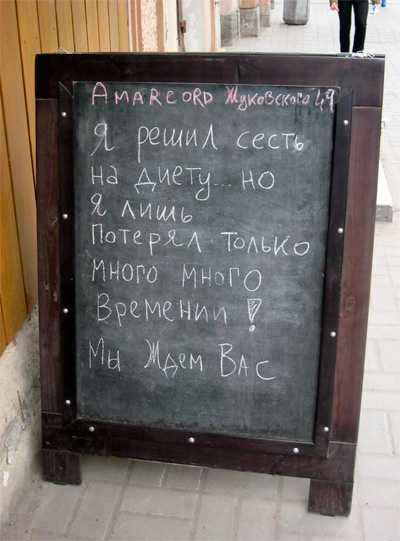 Amarcord Жуковского 49
Я решил сесть
на диету... но
Я лишь
потерял только
много много
Времении!
Мы Ждем Вас